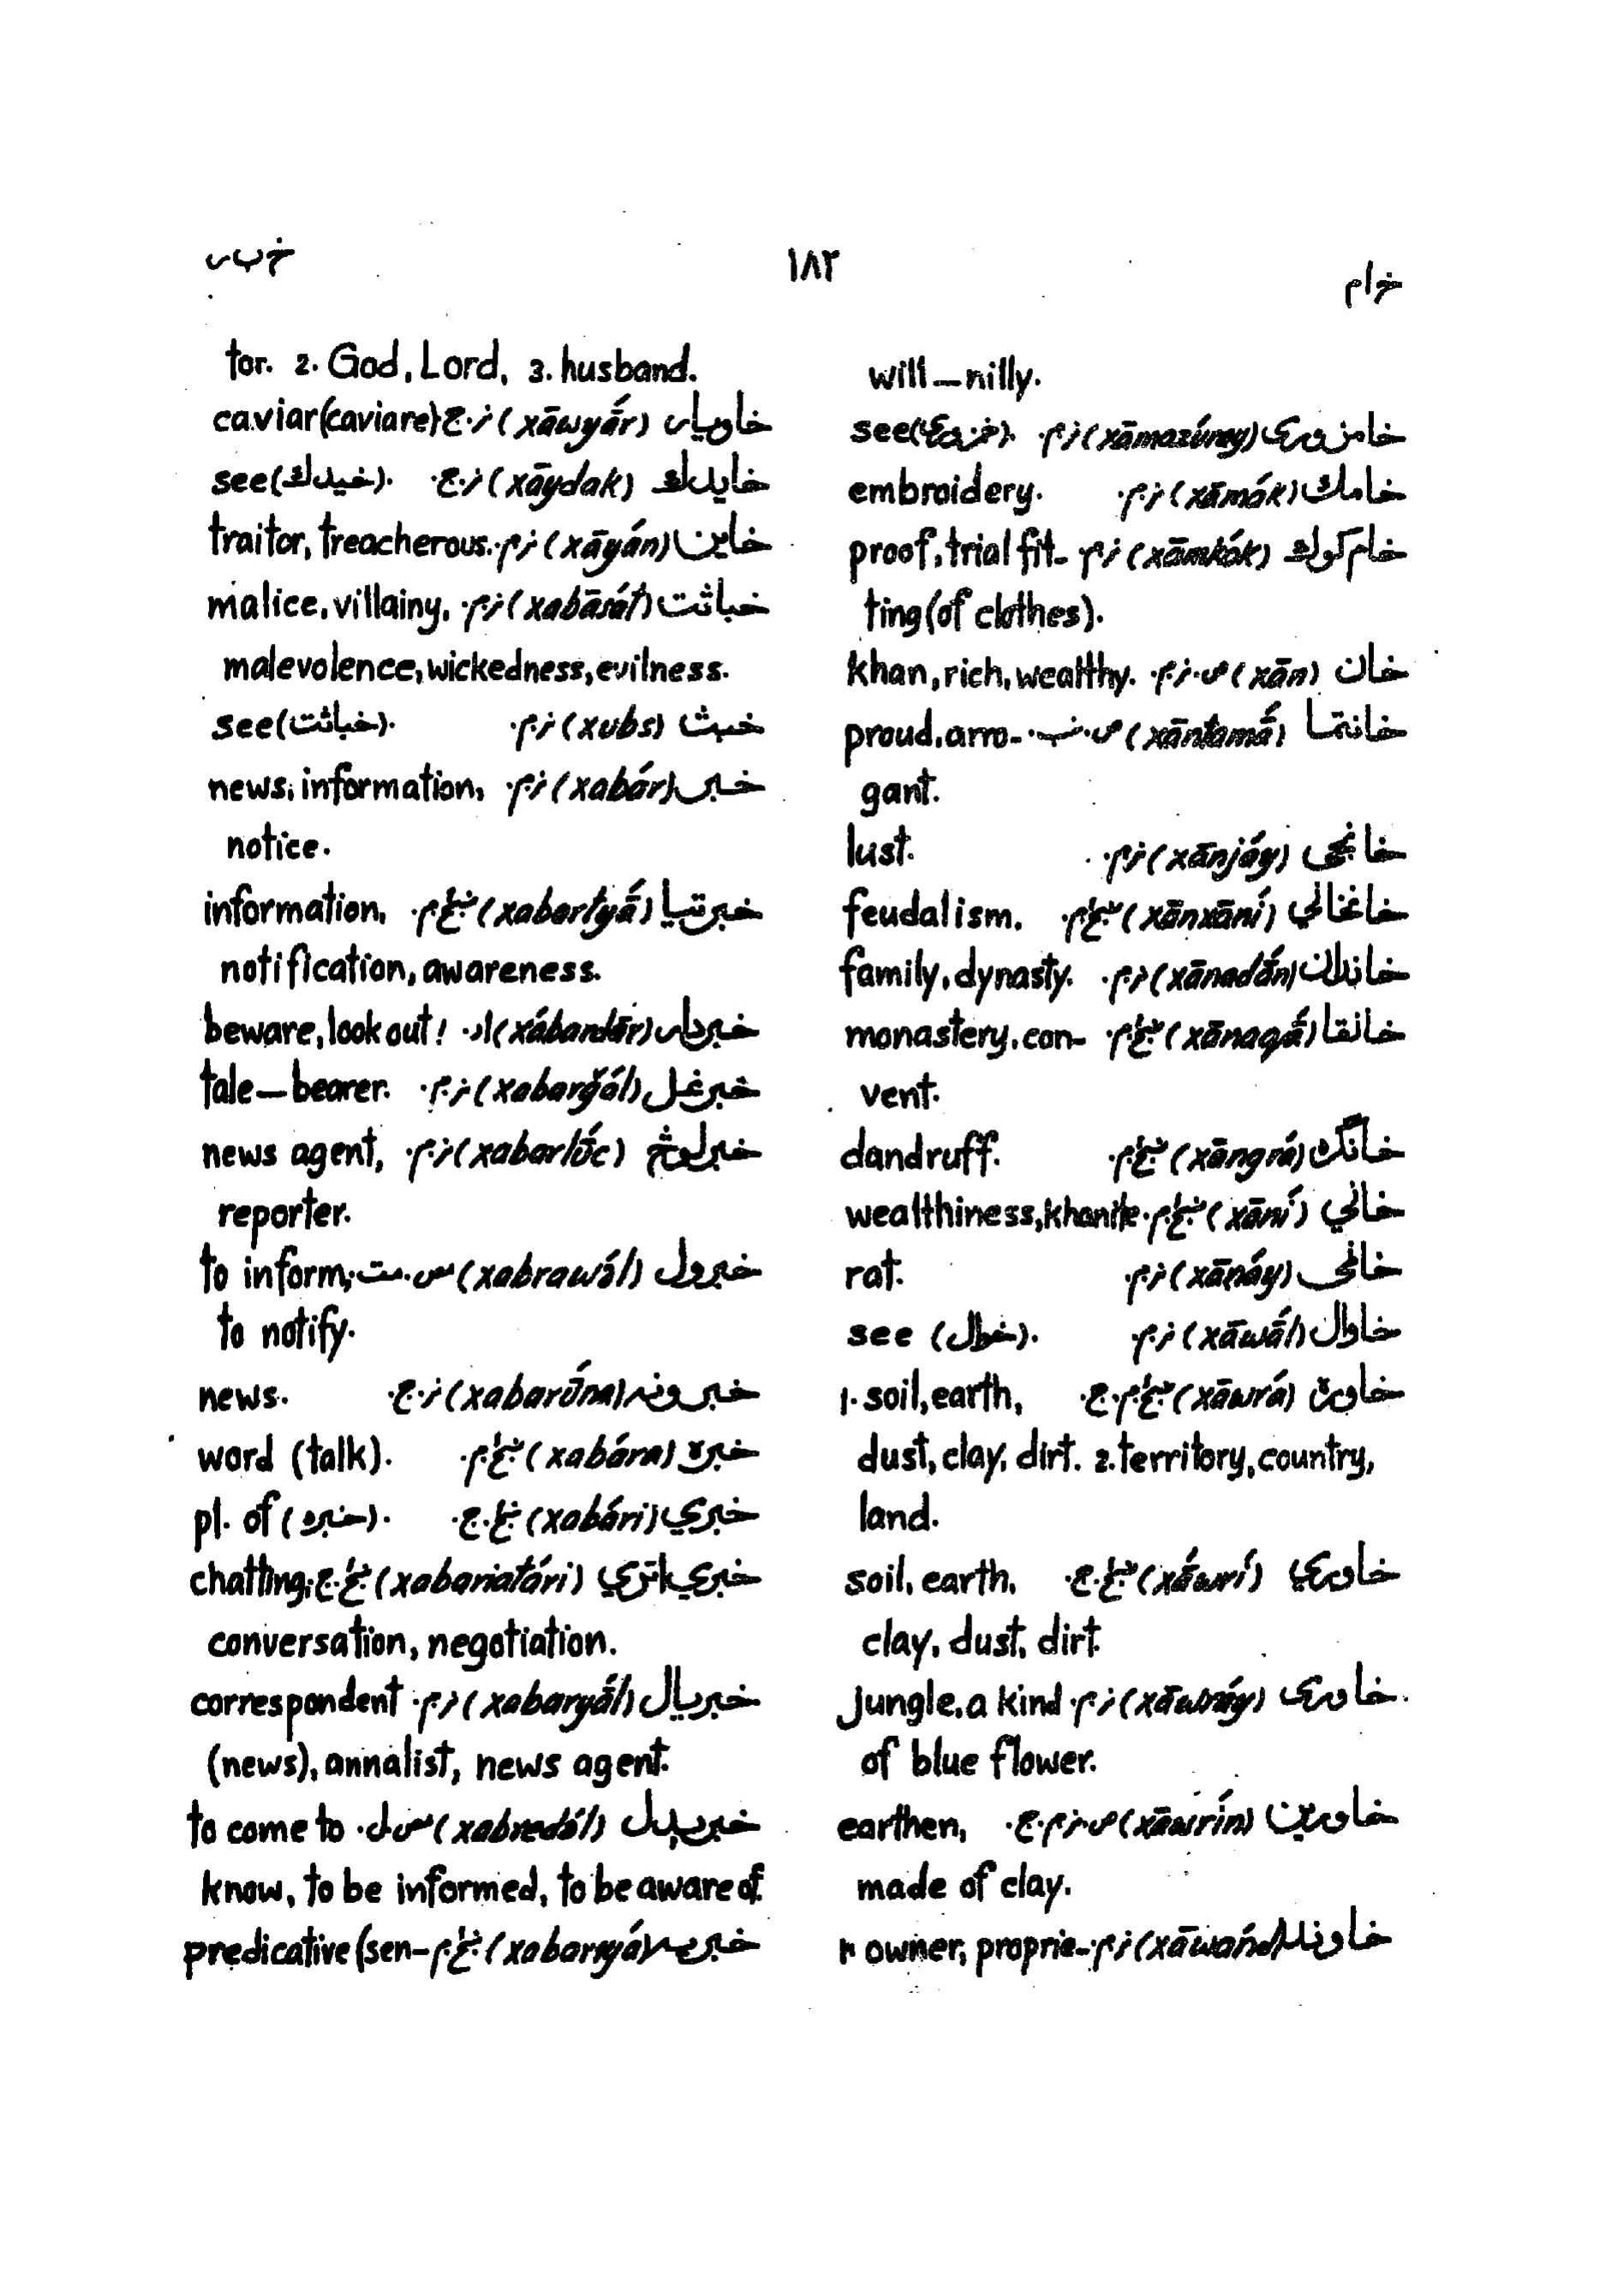 خ ا م
۱۸۲
خ ب ر
will—nilly.
خامزوری (xāmazúray) ن.م. see( ).
خامك (xāmák) ن.م. embroidery.
خام کوك (xāmkók) ن.م. proof, trial fit-
ting (of clothes).
خان (xān) ص.ن.م. khan, rich, wealthy.
خانتما (xāntamā́) ص.ن‌ب. proud, arro-
gant.
خانجی (xānjáy) ن.م. lust.
خانخاني (xānxāní) ن‌ځ.م. feudalism.
خاندان (xānadā́n) ن.م. family, dynasty.
خانقا (xānaqā́) ن‌ځ.م. monastery, con-
vent.
(xāngrá) ن‌ځ.م. dandruff.
خاني (xāní) ن‌ځ.م. wealthiness, khanite.
(xāṇáy) ن.م. rat.
خاوال (xāwā́l) ن.م. see (خوال).
خاوره (xāwrá) ن‌ځ.م.ج. 1. soil, earth,
dust, clay, dirt. 2. territory, country,
land.
خاوري (xā́wrí) ن‌ځ.ج. soil, earth,
clay, dust, dirt.
خاوری (xāwráy) ن.م. jungle, a kind
of blue flower.
خاورین (xāwrín) ص.ن.م.ج. earthen,
made of clay.
خاوند (xāwańd) ن.م. owner, proprie-
tor. 2. God, Lord, 3. husband.
خاویار (xāwyā́r) ن.ج. caviar (caviare)
خایدك (xāydak) ن.ج. see (خیدك).
خاین (xāyán) ن.م. traitor, treacherous.
خباثت (xabāsát) ن.م. malice, villainy,
malevolence, wickedness, evilness.
خبث (xubs) ن.م. see (خباثت).
خبر (xabár) ن.م. news, information,
notice.
خبرتیا (xabartyā́) ن‌ځ.م. information,
notification, awareness.
خبردار (xábardār) اد. beware, look out!
خبرغل (xabarğál) ن.م. tale—bearer.
خبرلوڅ (xabarlū́c) ن.م. news agent,
reporter.
خبرول (xabrawə́l) س.مت. to inform,
to notify.
خبرونه (xabarū́na) ن.ج. news.
خبره (xabára) ن‌ځ.م. word (talk).
خبري (xabári) ن‌ځ.ج. pl. of (خبره).
خبري اتري (xabariatári) ن‌ځ.ج. chatting,
conversation, negotiation.
خبریال (xabaryā́l) ن.م. correspondent
(news), annalist, news agent.
خبرېدل (xabredə́l) س.ل. to come to
know, to be informed, to be aware of.
خبریه (xabaryá) ن‌ځ.م. predicative (sen-